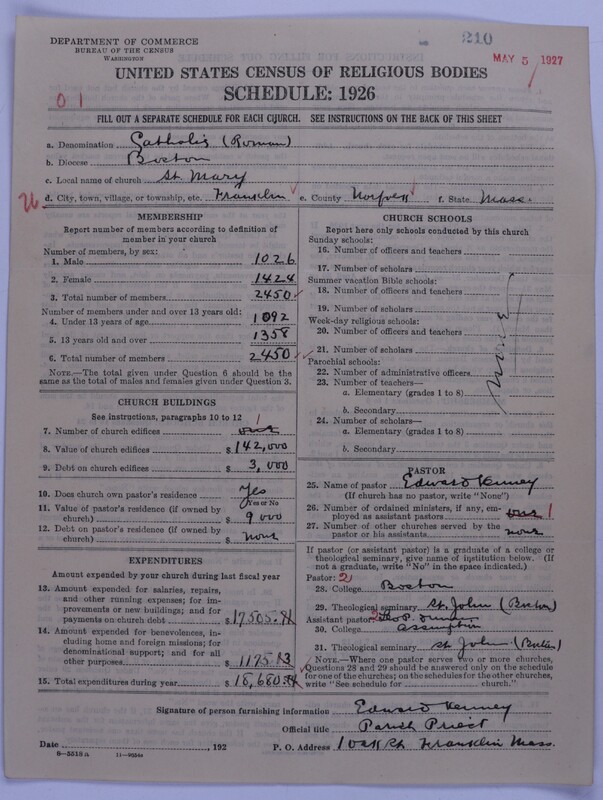 DEPARTMENT OF COMMERCE
BUREAU OF THE CENSUS
WASHINGTON
210
MAY 5 1927
UNITED STATES CENSUS OF RELIGIOUS BODIES
SCHEDULE: 1926
0 1
FILL OUT A SEPARATE SCHEDULE FOR EACH CHURCH. SEE INSTRUCTIONS ON THE BACK OF THIS SHEET
a. Denomination Catholic (Roman)
b. Diocese Boston
c. Local name of church St. Mary
d. City, town, village, or township, etc. Franklin e. County Norfolk f. State Mass.
MEMBERSHIP
Report number of members according to definition of member in your church
Number of members, by sex:
1. Male 1026
2. Female 1424
3. Total number of members 2450
Number of members under and over 13 years old:
4. Under 13 years of age 1092
5. 13 years old and over 1358
6. Total number of members 2450
NOTE.—The total given under Question 6 should be the same as the total of males and females given under Question 3.
CHURCH BUILDINGS
See instructions, paragraphs 10 to 12
7. Number of church edifices one 1
8. Value of church edifices $ 142,000
9. Debt on church edifices $ 3,000
10. Does church own pastor's residence Yes
Yes or No
11. Value of pastor's residence (if owned by church) $ 9000
12. Debt on pastor's residence (if owned by church) $ none
EXPENDITURES
Amount expended by your church during last fiscal year
13. Amount expended for salaries, repairs, and other running expenses; for improvements or new buildings; and for payments on church debt $ 17505.
14. Amount expended for benevolences, including home and foreign missions; for denominational support; and for all other purposes $ 1175.
15. Total expenditures during year $ 18,680.
CHURCH SCHOOLS
Report here only schools conducted by this church
Sunday schools:
16. Number of officers and teachers
17. Number of scholars
Summer vacation Bible schools:
18. Number of officers and teachers
19. Number of scholars
Week-day religious schools:
20. Number of officers and teachers
21. Number of scholars
Parochial schools:
22. Number of administrative officers
23. Number of teachers—
a. Elementary (grades 1 to 8)
b. Secondary
24. Number of scholars—
a. Elementary (grades 1 to 8)
b. Secondary
PASTOR
25. Name of pastor Edward Kenney
(If church has no pastor, write "None")
26. Number of ordained ministers, if any, employed as assistant pastors one 1
27. Number of other churches served by the pastor or his assistants none
If pastor (or assistant pastor) is a graduate of a college or theological seminary, give name of institution below. (If not a graduate, write "No" in the space indicated.)
Pastor: 2
28. College Boston
29. Theological seminary St. John (Boston)
Assistant pastor:
30. College Assumption
31. Theological seminary St John (Boston)
NOTE.—Where one pastor serves two or more churches, Questions 28 and 29 should be answered only on the schedule for one of the churches; on the schedules for the other churches, write "See schedule for church."
Signature of person furnishing information Edward Kenney
Official title Parish Priest
Date , 192 P. O. Address 1 Oak St Franklin Mass.
8—5518 a